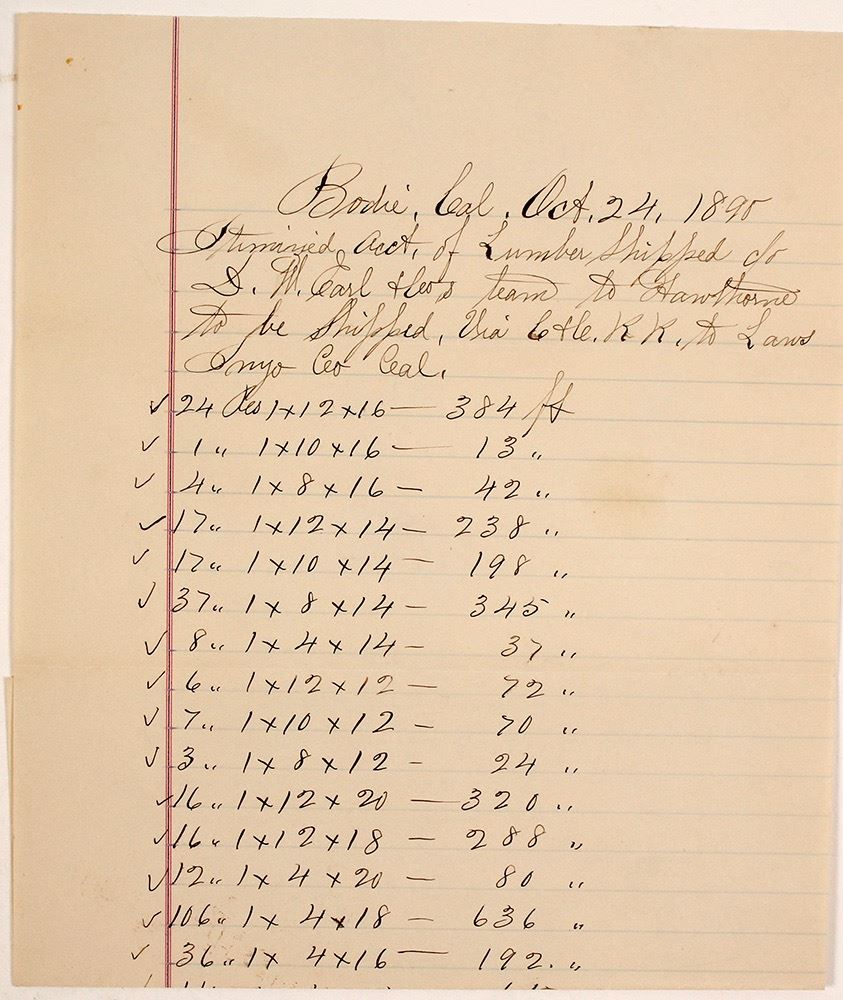 Bodie, Cal. Oct. 24, 1890
Itemized Acct. of Lumber Shipped c/o
D. M. Earl & Co's team to Hawthorne
to be Shipped, Via C & C. R R. to Laws
Inyo Co Cal.
✓ 24 Pcs 1x12x16 — 384 ft
✓ 1 " 1x10x16 — 13 "
✓ 4 " 1x8x16 — 42 "
✓ 17 " 1x12x14 — 238 "
✓ 17 " 1x10x14 — 198 "
✓ 37 " 1x8x14 — 345 "
✓ 8 " 1x4x14 — 37 "
✓ 6 " 1x12x12 — 72 "
✓ 7 " 1x10x12 — 70 "
✓ 3 " 1x8x12 - 24 "
✓ 16 " 1x12x20 — 320 "
✓ 16 " 1x12x18 — 288 "
✓ 12 " 1x4x20 — 80 "
✓ 106 " 1x4x18 — 636 "
✓ 36 " 1x4x16 — 192. "